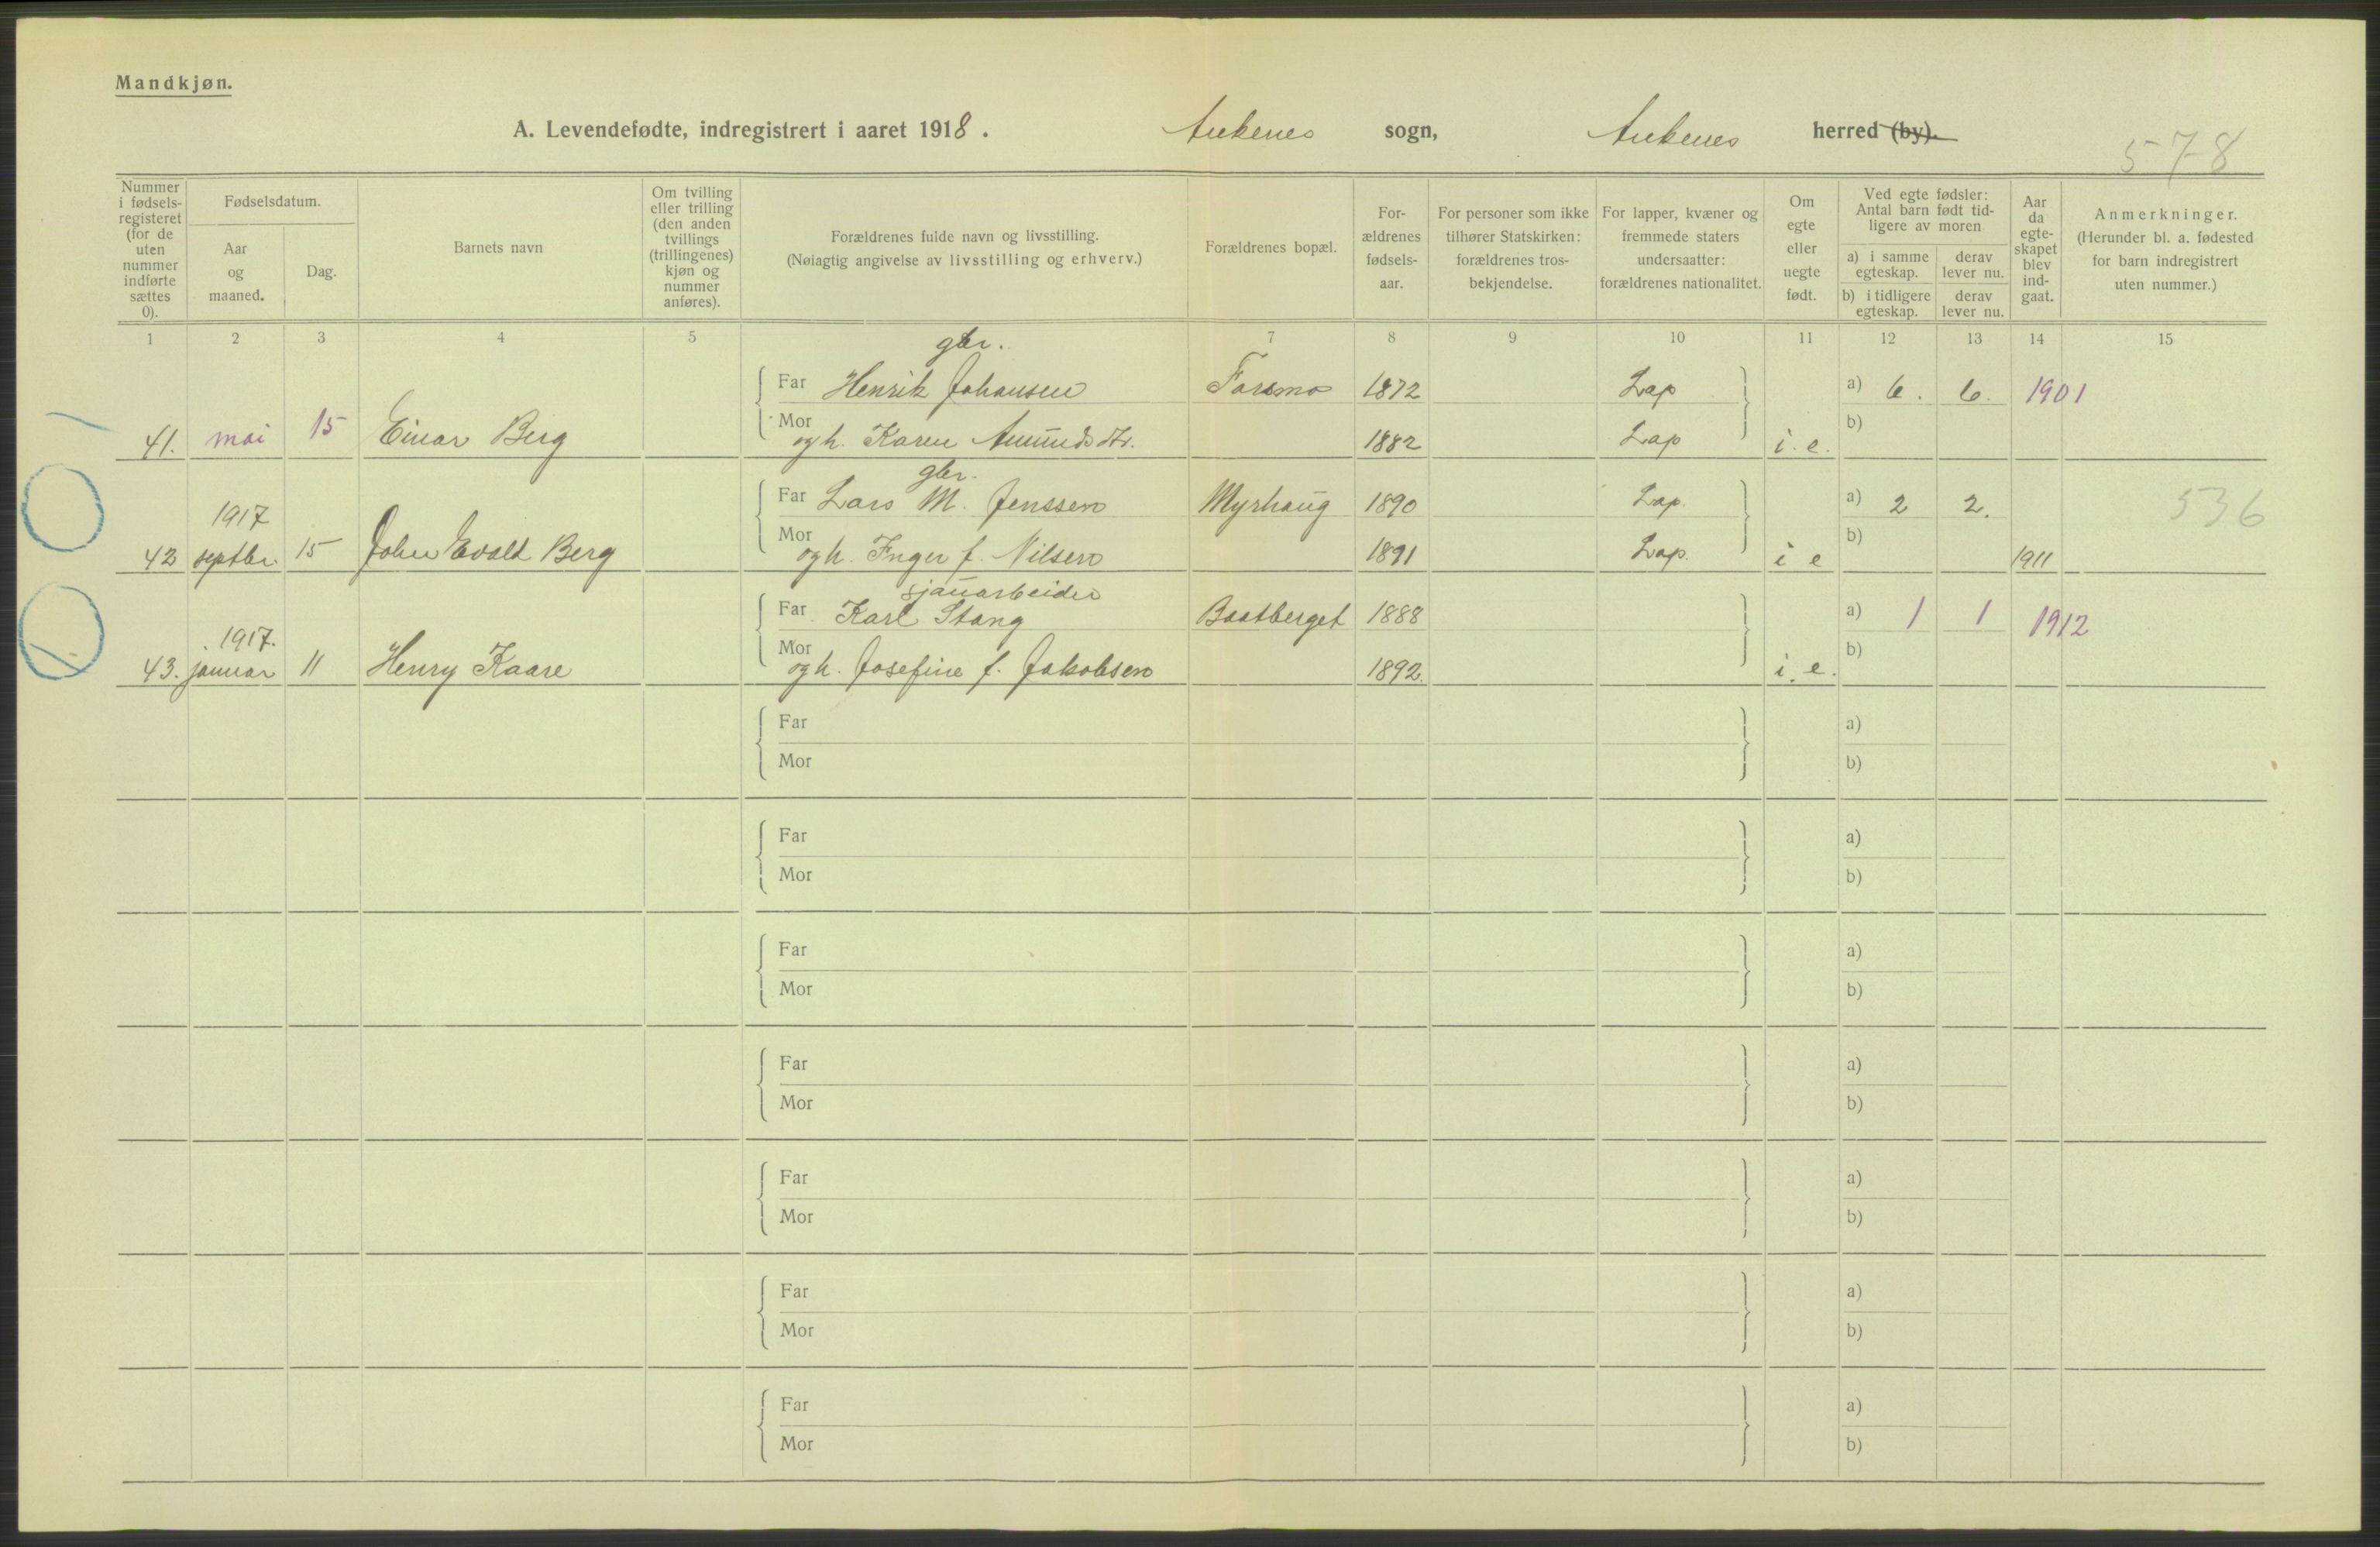 Mandkjøn.
A. Levendefødte, indregistrert i aaret 1918. Ankenes sogn, Ankenes herred (by).
578
Nummer i fødsels-registeret (for de uten nummer indførte sættes 0).
Fødselsdatum.
Aar og maaned.
Dag.
Barnets navn
Om tvilling eller trilling (den anden tvillings (trillingenes) kjøn og nummer anføres).
Forældrenes fulde navn og livsstilling.
(Nøiagtig angivelse av livsstilling og erhverv.)
Forældrenes bopæl.
For-ældrenes fødsels-aar.
For personer som ikke tilhører Statskirken: forældrenes tros-bekjendelse.
For lapper, kvæner og fremmede staters undersaatter: forældrenes nationalitet.
Om egte eller uegte født.
Ved egte fødsler: Antal barn født tid-ligere av moren
a) i samme egteskap.
derav lever nu.
b) i tidligere egteskap.
derav lever nu.
Aar da egte-skapet blev ind-gaat.
Anmerkninger.
(Herunder bl. a. fødested for barn indregistrert uten nummer.)
1 2 3 4 5 7 8 9 10 11 12 13 14 15
gbr.
Far Henrik Johansen Forsmo 1872 Lap a) 6. 6. 1901
41. mai 15 Einar Berg Mor og h. Karen Amundsdtr. 1882 Lap i. e. b)
gbr.
Far Lars M. Jenssen Myrhaug 1890 Lap. a) 2 2. 536
1917
42 septbr. 15 John Evald Berg Mor og h. Inger f. Nilsen 1891 Lap. i e b) 1911
sjauarbeider
Far Karl Stang Baatberget 1888 a) 1 1 1912
1917.
43. januar 11 Henry Kaare Mor og h. Josefine f. Jakobsen 1892. i. e. b)
Far a)
Mor b)
Far a)
Mor b)
Far a)
Mor b)
Far a)
Mor b)
Far a)
Mor b)
Far a)
Mor b)
Far a)
Mor b)